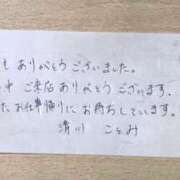 もありがとうございました。
中 ご来店ありがとうございます。
たお仕事帰りにお待ちしています。
清川 ことみ